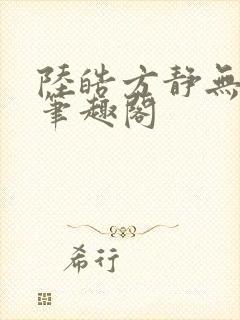 陸皓方靜無
筆趣閣
希行